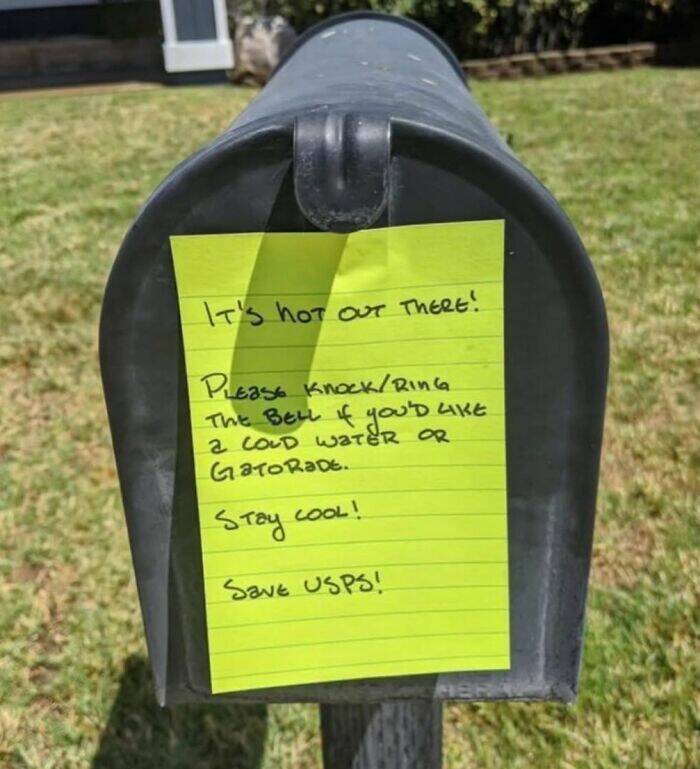 IT'S HOT OUT THERE!
PLEASE KNOCK/RING
THE BELL if YOU'D LIKE
a COLD WATER OR
GATORADE.
STAY COOL!
Save USPS!